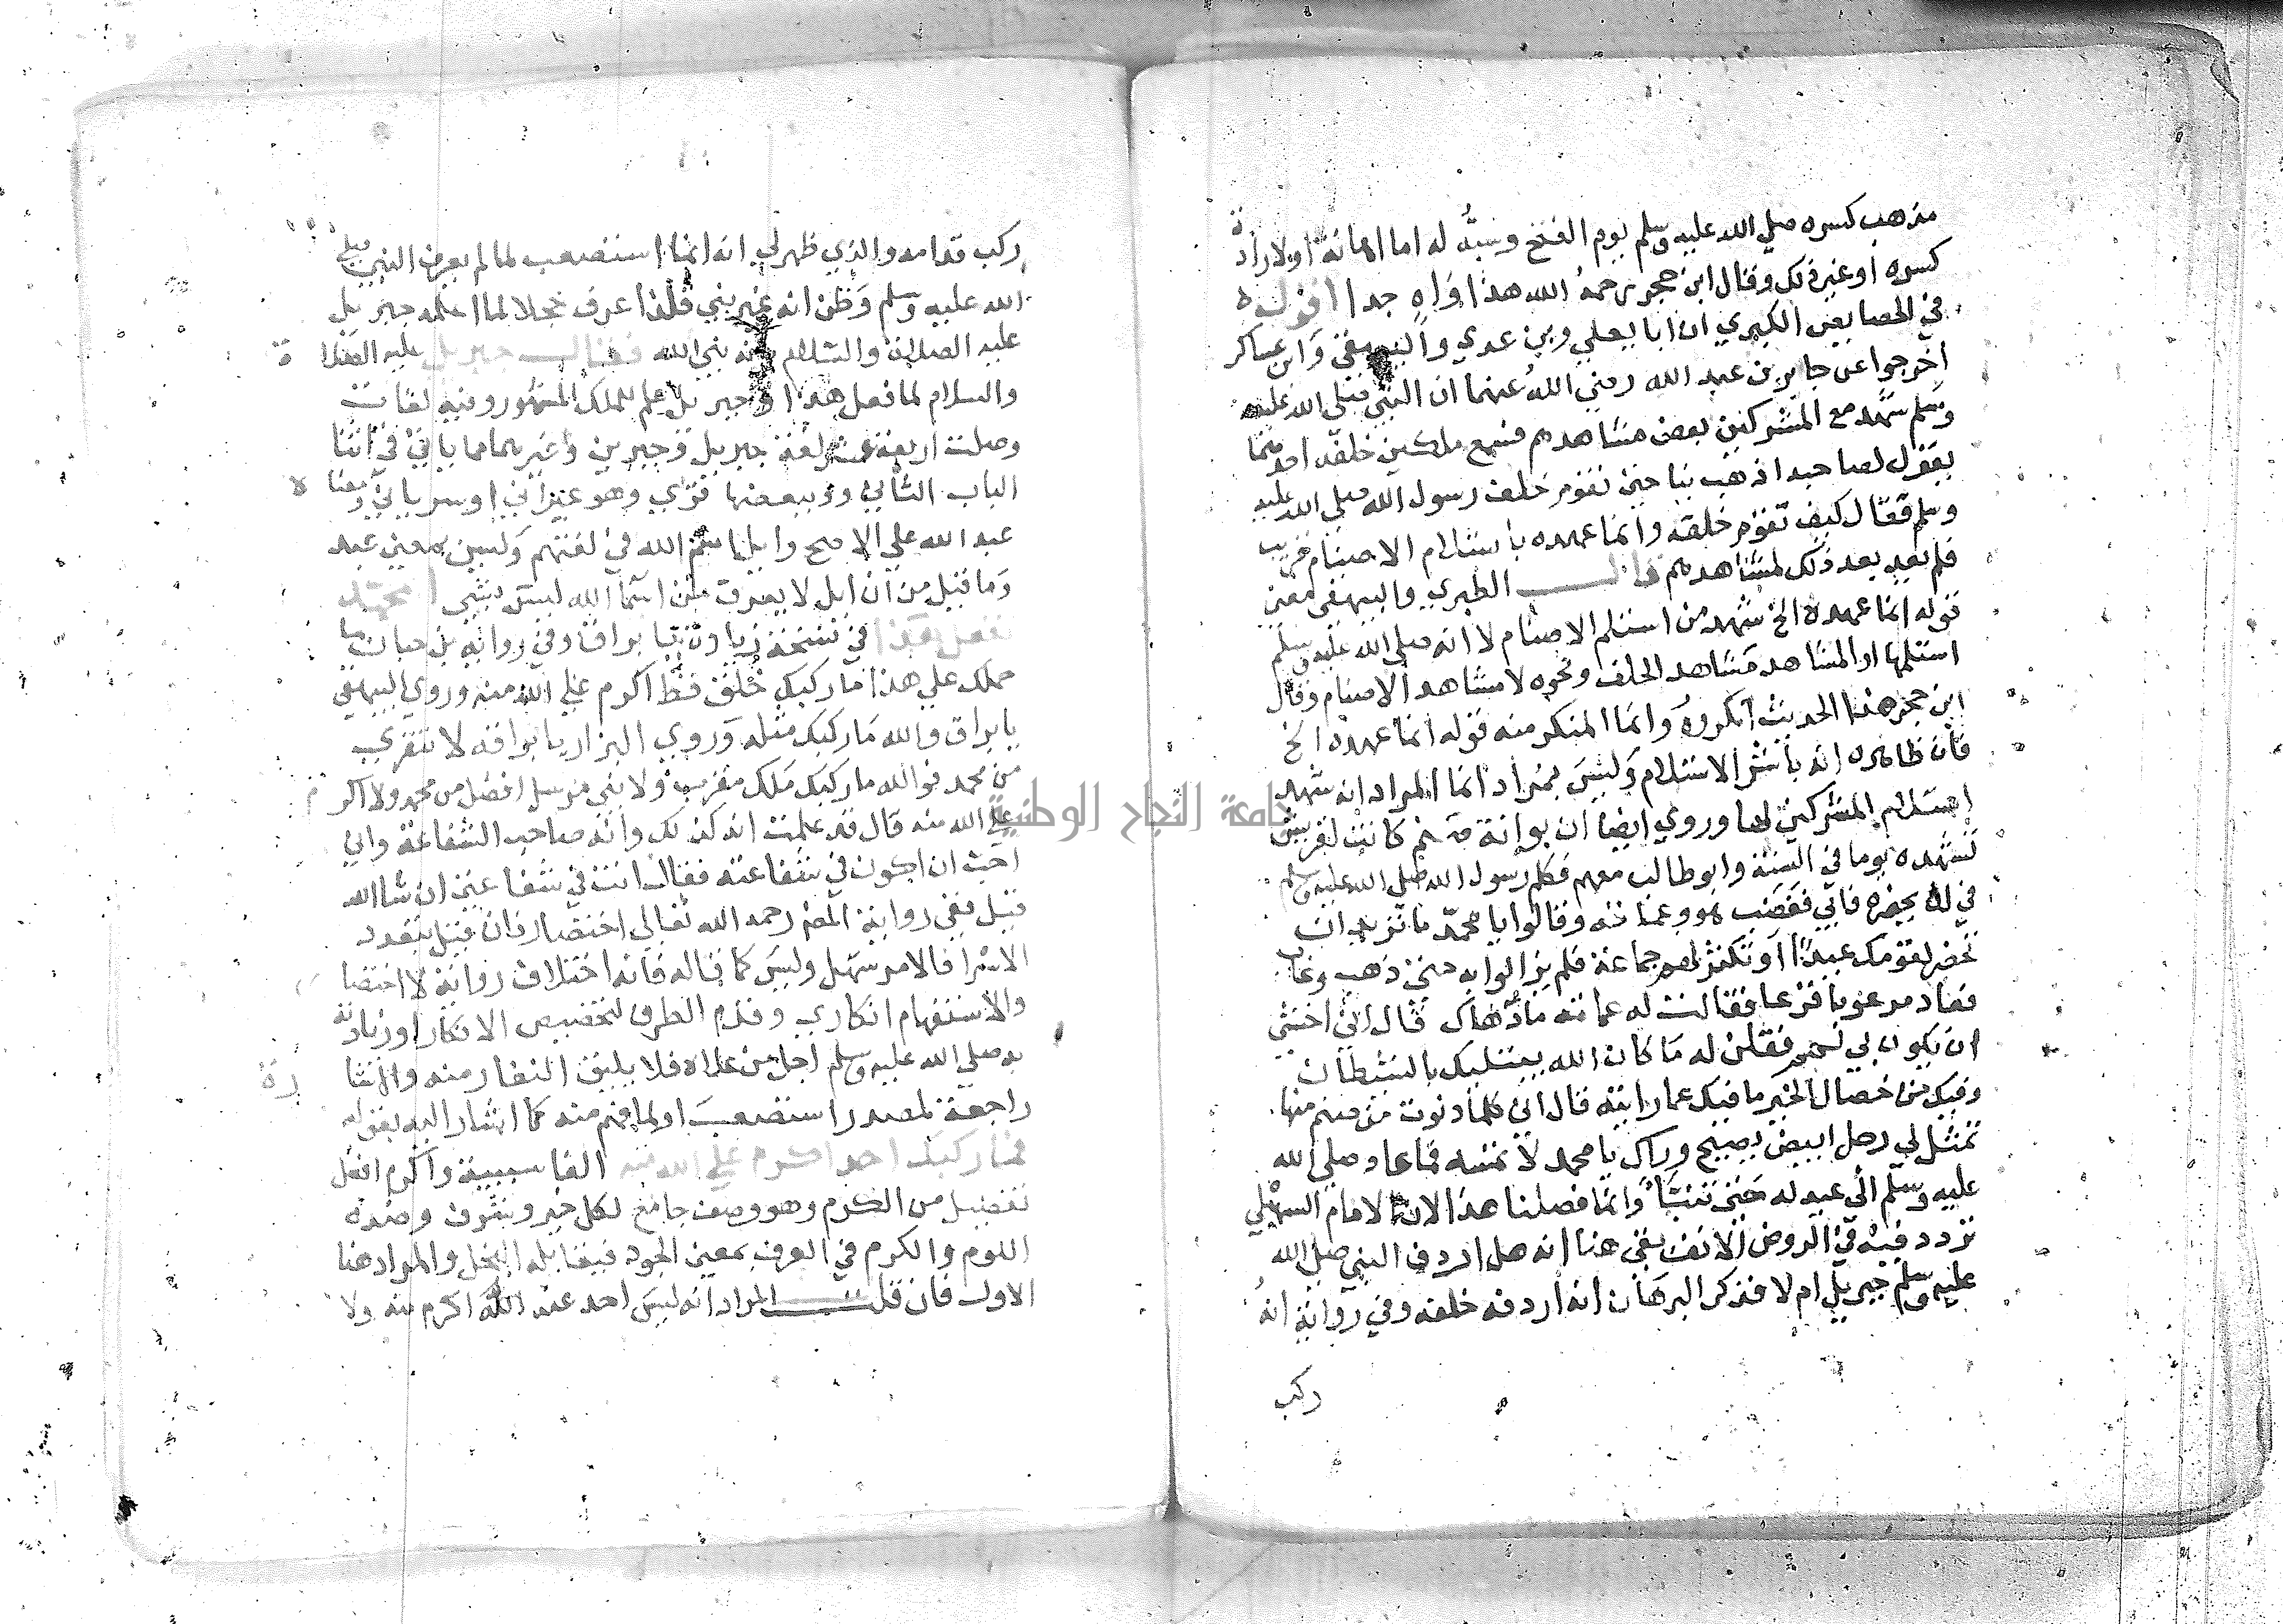 مذهب كسره صلي الله عليه وسلم يوم الفتح وسبُّه له اما اهانة او لارادة
كسره او غيره ذلك وقال ابن حجر رحمهُ الله هذا وَاهِ جدا اقول
في الخصايص الكبري ان ابا يعلي وبن عدي والبيهقي وابن عساكر
اخرجوا عن جابر بن عبد الله رضي اللهُ عنهما ان النبي صلي الله عليه
وسلم شهد مع المشركين بعض مشاهدهم فسمع ملكين خلفه احدهما
يقول لصاحبه اذهب بنا حتى نقوم خلف رسول الله صلي الله عليه
وسلم فقال كيف نقوم خلفه وانما عهده باستلام الاصنام قريب
فلم يعد بعد ذلك لمشاهدهم قال الطبري والبيهقي معنى
قوله انما عهده الخ شهد من استلم الاصنام لا انه صلي الله عليه وسلم
استلمها او المشاهد مشاهد الحلف ونحوه لا مشاهد الاصنام وقال
ابن حجر هذا الحديث انكروهُ وانما المنكر منه قوله انما عهده الخ
فان ظاهره انه باشر الاستلام وَليسَ بمراد انما المراد انه شهد
استلام المشركين لها وروي ايضا ان بوانة صنم كانت لقريش
تشهده يوما في السنة وابو طالب معهم فكلم رسول الله صلي الله عليه وسلم
في ان يحضره فابي فغضب هو وعماته وقالوا يا محمّد ما تريد ان
تحضر لقومك عيدًا او تكثر لهم جماعة فلم يزالوا به حتى ذهب وغاب
فعاد مرعوبا فزعا فقالت له عماته ما دُهاك قال اني اخشي
ان يكون بي لمم فقلن له ما كان الله يبتليك بالشيطان
وفيك من خصال الخير ما فيك عمار ايته قال اني كلما دنوت من صنم منها
تمثل لي رجل ابيض يصيح وراك يا محمد لا تمسه فما عاد صلي الله
عليه وسلم الي عيد له حتى تنبّأ وانما فصلنا هذا لان الامام السهيلي
تردد فيه في الروض الانف بقي هنا انه هل اردف النبي صلي الله
عليه وسلم جبريل ام لا فذكر البرهان انه اردفه خلفه وفي رواية انهُ
ركب
ركب قدامه والذي ظهر لي انه انما استصعب لما لم يعرف النبي صلي
الله عليه وسلم وَظن انه غير نبي فلذا عرق خجلا لما اعلمه جبريل
عليه الصلاة والسلام انه نبي الله فقال جبريل عليه الصلاة
والسلام لما فعل هذا وجبريل علم للملك المشهور وفيه لغات
وصلت اربعة عشر لغة جبريل وجبرين وغيرهما مما ياتي في اثنا
الباب الثاني وببعضها قري وهو عبراني او سرياني ومعناه
عبد الله علي الاصح وايل اسم الله في لغتهم وَليس بمعنى عبد
وَما قيل من ان ايل لا يعرف من اسما الله ليسَ بشي ابمحمّد
تفعل هذا في نسخة زيادة يا براق وفي رواية بن حبان ما
حملك علي هذا فما ركبك خُلق قط اكرم علي الله منه وروي البيهقي
يا براق والله ما ركبك مثله وَروي البزار يا براقه لا تنفري
من محمد فوالله ما ركبك مَلك مقرب ولا نبي مرسل افضل من محمد ولا اكرم
علي الله منه قال قد علمت انه كذلك وانه صاحب الشفاعة واني
احب ان اكون في شفاعته فقال انت في شفاعتي ان شا الله
قيل ففي رواية المصـ رحمه الله تعالي اختصار فان قيل بتعدد
الاسرا فالامر سهل وليسَ كما قاله فانه اختلاف رواية لا اختصا
والاستفهام انكاري وقدم الطرف لتخصيص الانكار اوزيادته
به صلي الله عليه وسلم اجل من علاه فلا يليق النفار منه والاشا رة
راجعة لمصدر استصعبَ او لما فهم منه كما اشار اليه بقوله
فما ركبك احد اكرم علي الله منه الفا سببية واكرم افعل
تفضيل من الكرم وهو وصف جامع لكل خير وشرف وضده
اللوم والكرم في العرف بمعنى الجود فيقابله البخل والمراد هنا
الاول فان قلت المراد انه ليسَ احد عند الله اكرم منه ولا
جامعة النجاح الوطنية